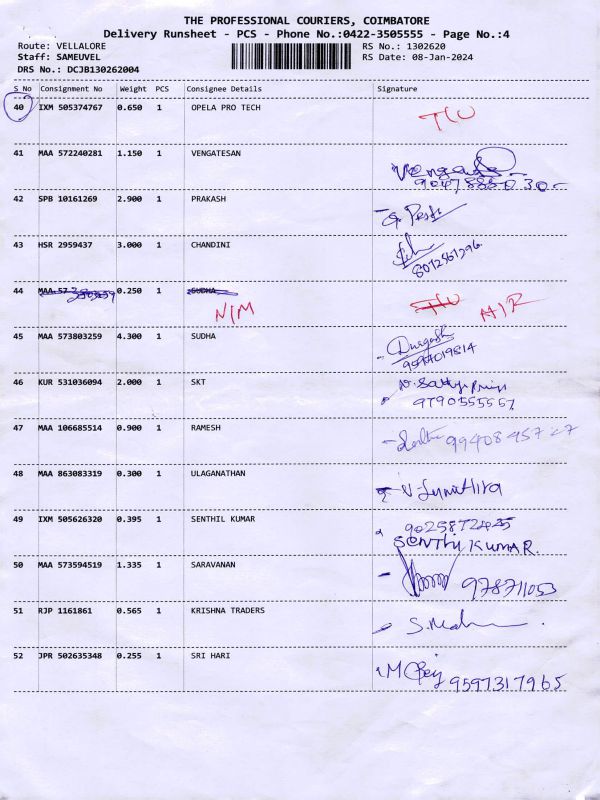 THE PROFESSIONAL COURIERS, COIMBATORE
Delivery Runsheet - PCS - Phone No.:0422-3505555 - Page No.:4
Route: VELLALORE RS No.: 1302620
Staff: SAMEUVEL RS Date: 08-Jan-2024
DRS No.: DCJB130262004
S No Consignment No Weight PCS Consignee Details Signature
40 IXM 505374767 0.650 1 OPELA PRO TECH
41 MAA 572240281 1.150 1 VENGATESAN
42 SPB 10161269 2.900 1 PRAKASH
43 HSR 2959437 3.000 1 CHANDINI
8012561296
44 0.250 1 SUDHA
N/M
45 MAA 573803259 4.300 1 SUDHA Durgash
9594019814
46 KUR 531036094 2.000 1 SKT
9790555557
47 MAA 106685514 0.900 1 RAMESH
48 MAA 863083319 0.300 1 ULAGANATHAN
49 IXM 505626320 0.395 1 SENTHIL KUMAR 9025872425
SENTHIL KUMAR.
50 MAA 573594519 1.335 1 SARAVANAN
978711053
51 RJP 1161861 0.565 1 KRISHNA TRADERS
52 JPR 502635348 0.255 1 SRI HARI
9597317965